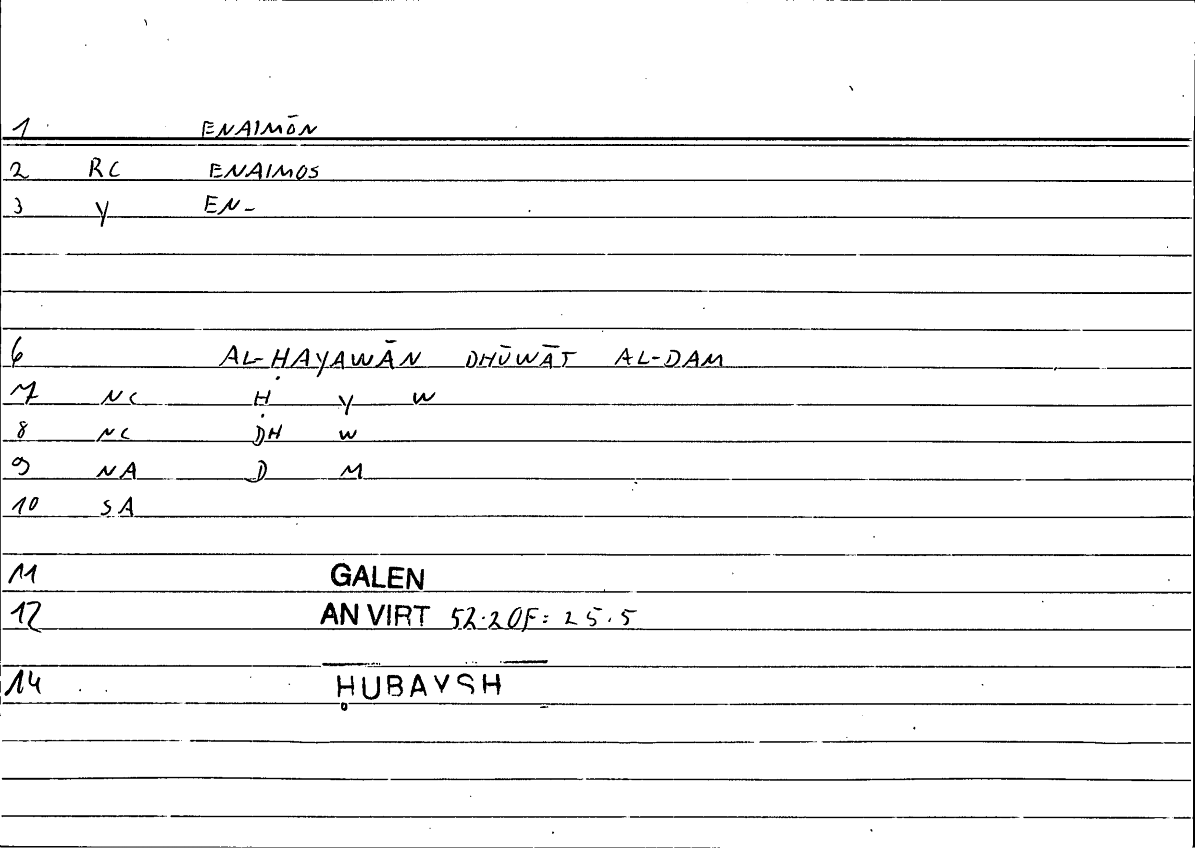 1 ENAIMŌN
2 RC ENAIMOS
3 Y EN-
6 AL-ḤAYAWĀN DHŪWĀT AL-DAM
7 NC Ḥ Y W
8 NC DH W
9 NA D M
10 SA
11 GALEN
12 AN VIRT 52.20F: 25.5
14 ḤUBAYSH